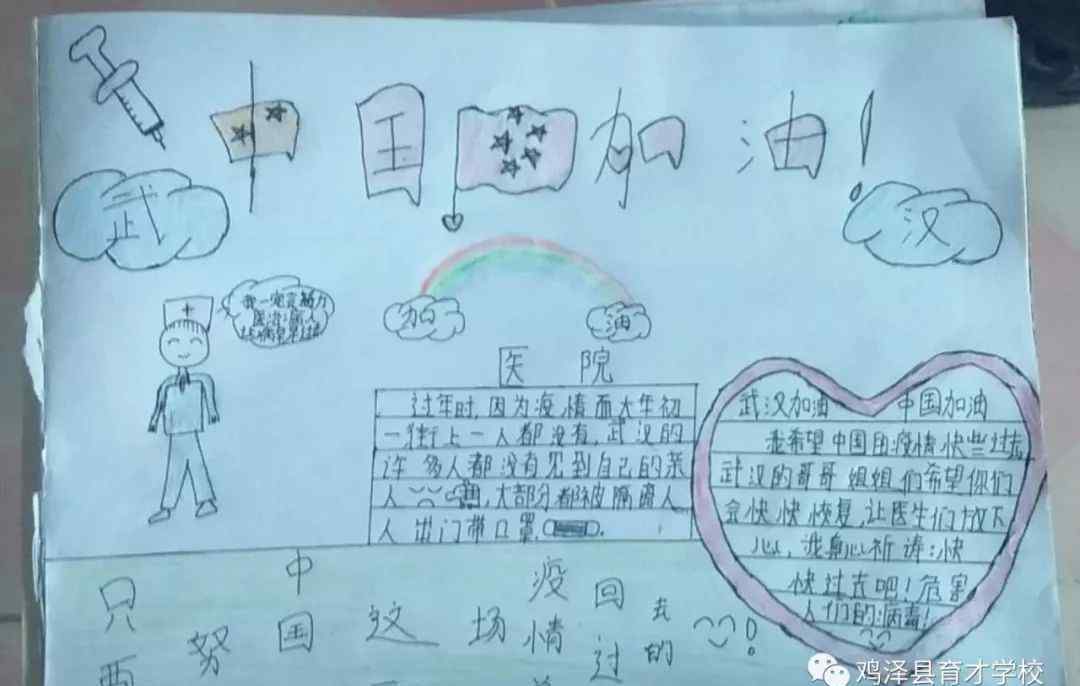 中国加油!
武
汉
我一定会努力
医治病人
加
油
医 院
过年时,因为疫情而大年初
一街上一人都没有,武汉的
许多人都没有见到自己的亲
人,大部分都被隔离人
人出门带口罩.
武汉加油 中国加油
我希望中国的疫情快些过去
武汉的哥哥姐姐们希望你们
会快快恢复,让医生们放下
心,我身心祈祷:快
快过去吧!危害
人们的病毒!
只 努 中国 这 场 疫情 回过去的
鸡泽县育才学校